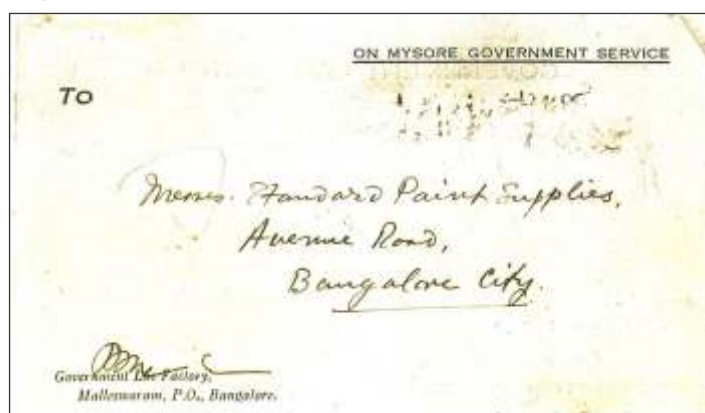 ON MYSORE GOVERNMENT SERVICE
TO
Messrs. Standard Paint Supplies,
Avenue Road,
Bangalore City.
Government Factory,
Malleswaram, P.O., Bangalore.